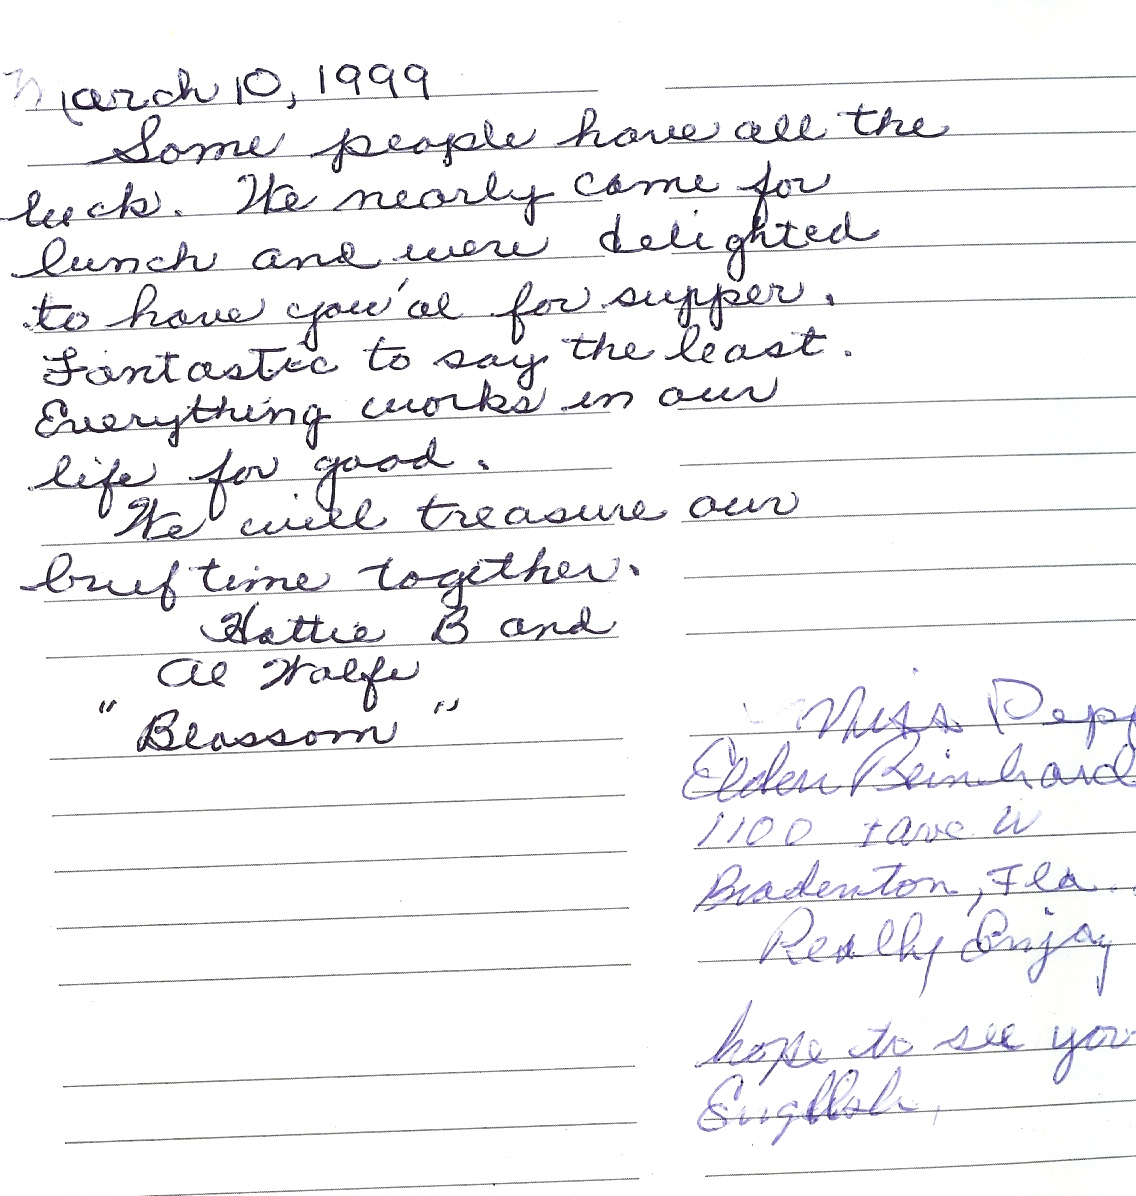 March 10, 1999
Some people have all the
luck. We nearly came for
lunch and were delighted
to have you'al for supper.
Fantastic to say the least.
Everything works in our
life for good.
We will treasure our
brief time together.
Hattie B and
Al Wolfe
" Blossom "
Miss Pepp
Elden Reinhard
1100 Ave W
Bradenton, Fla.
Really Enjoy
hope to see you